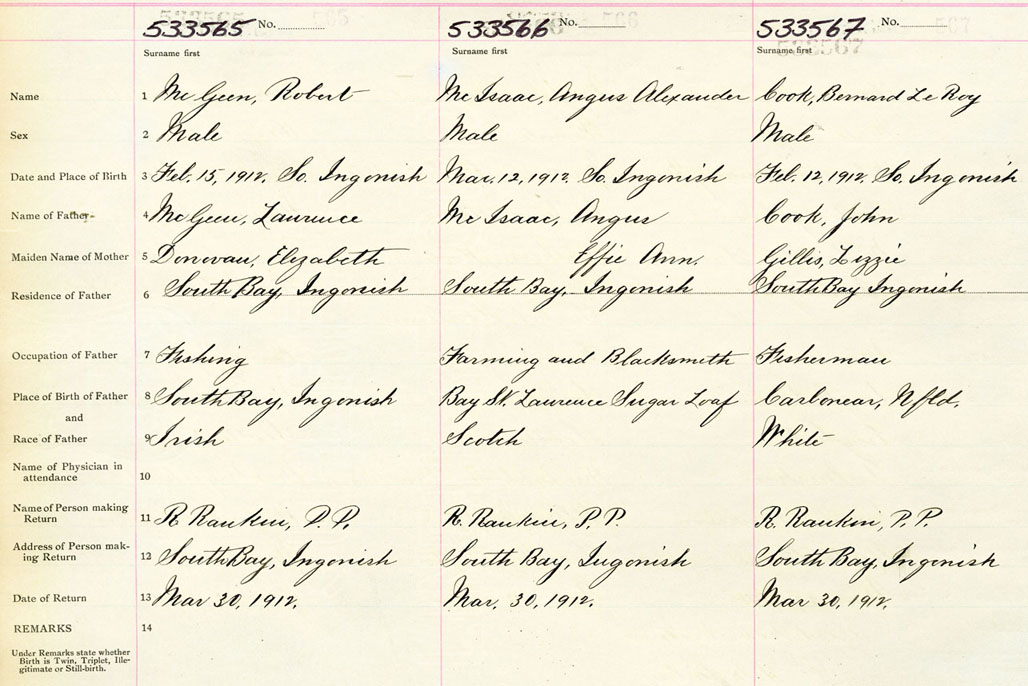 533565 No. 533566 No. 533567 No.
Surname first Surname first Surname first
Name 1 McGeen, Robert McIsaac, Angus Alexander Cook, Bernard Le Roy
Sex 2 Male Male Male
Date and Place of Birth 3 Feb. 15, 1912. So. Ingonish Mar. 12, 1912. So. Ingonish Feb. 12, 1912. So. Ingonish
Name of Father 4 McGeen, Laurence McIsaac, Angus Cook, John
Maiden Name of Mother 5 Donovan, Elizabeth Effie Ann. Gillis, Lizzie
Residence of Father 6 South Bay, Ingonish South Bay, Ingonish South Bay Ingonish
Occupation of Father 7 Fishing Farming and Blacksmith Fisherman
Place of Birth of Father 8 South Bay, Ingonish Bay St. Laurence Sugar Loaf Carbonear, Nfld.
and
Race of Father 9 Irish Scotch White
Name of Physician in
attendance 10
Name of Person making
Return 11 R. Rankin, P.P. R. Rankin, P.P. R. Rankin, P.P.
Address of Person mak-
ing Return 12 South Bay, Ingonish South Bay, Ingonish South Bay, Ingonish
Date of Return 13 Mar 30, 1912. Mar. 30, 1912. Mar 30, 1912.
REMARKS 14
Under Remarks state whether
Birth is Twin, Triplet, Ille-
gitimate or Still-birth.